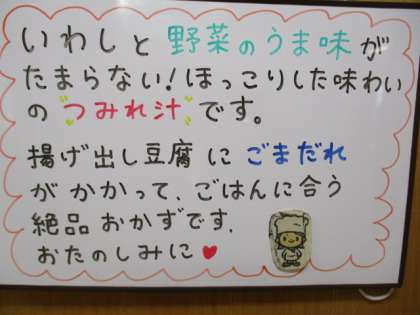 いわしと 野菜のうま味が
たまらない!ほっこりした味わい
の"つみれ汁"です。
揚げ出し豆腐に ごまだれ
が かかって、ごはんに合う
絶品おかずです。
おたのしみに♥